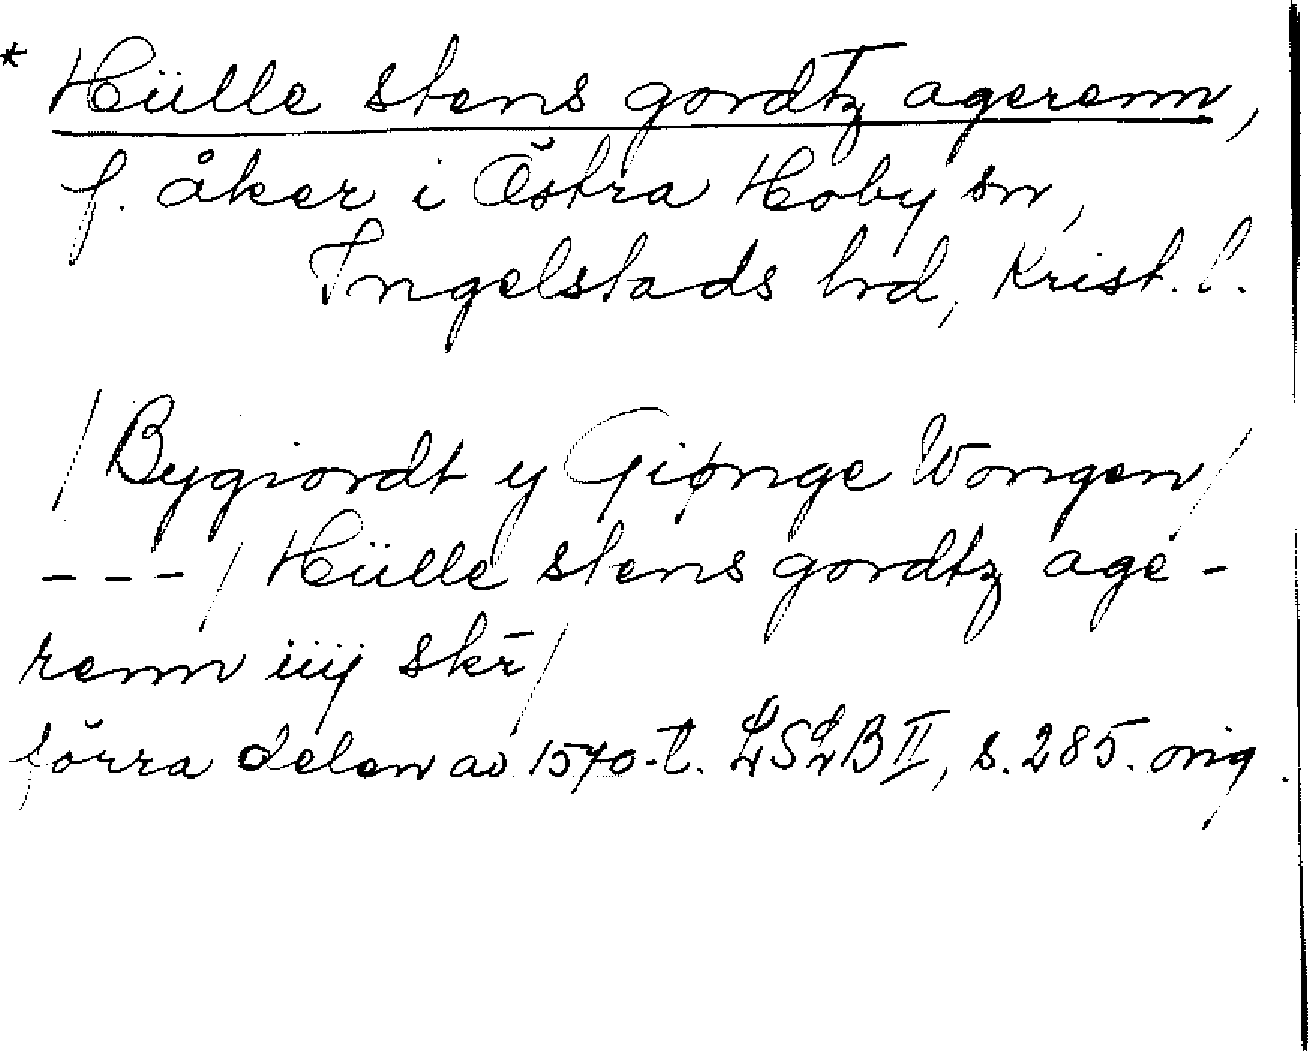 * Hülle stens gordtz agerenn,
f. åker i Östra Hoby sn,
Ingelstads hrd, Krist. l.
/Bygiordt y Giønge Wongen/
---/ Hülle stens gordtz age-
renn iiij skr̄/
förra delen av 1570-t. LSLB II, s. 285. orig.